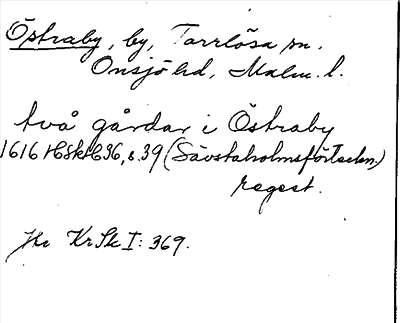 Östraby, by, Torrlösa sn.
Onsjö hd, Malm. l.
två gårdar i Östraby
1616 HSkH36, s. 39 (Sävstaholmsförteckn.)
regest.
Jfr KrSk I: 369.